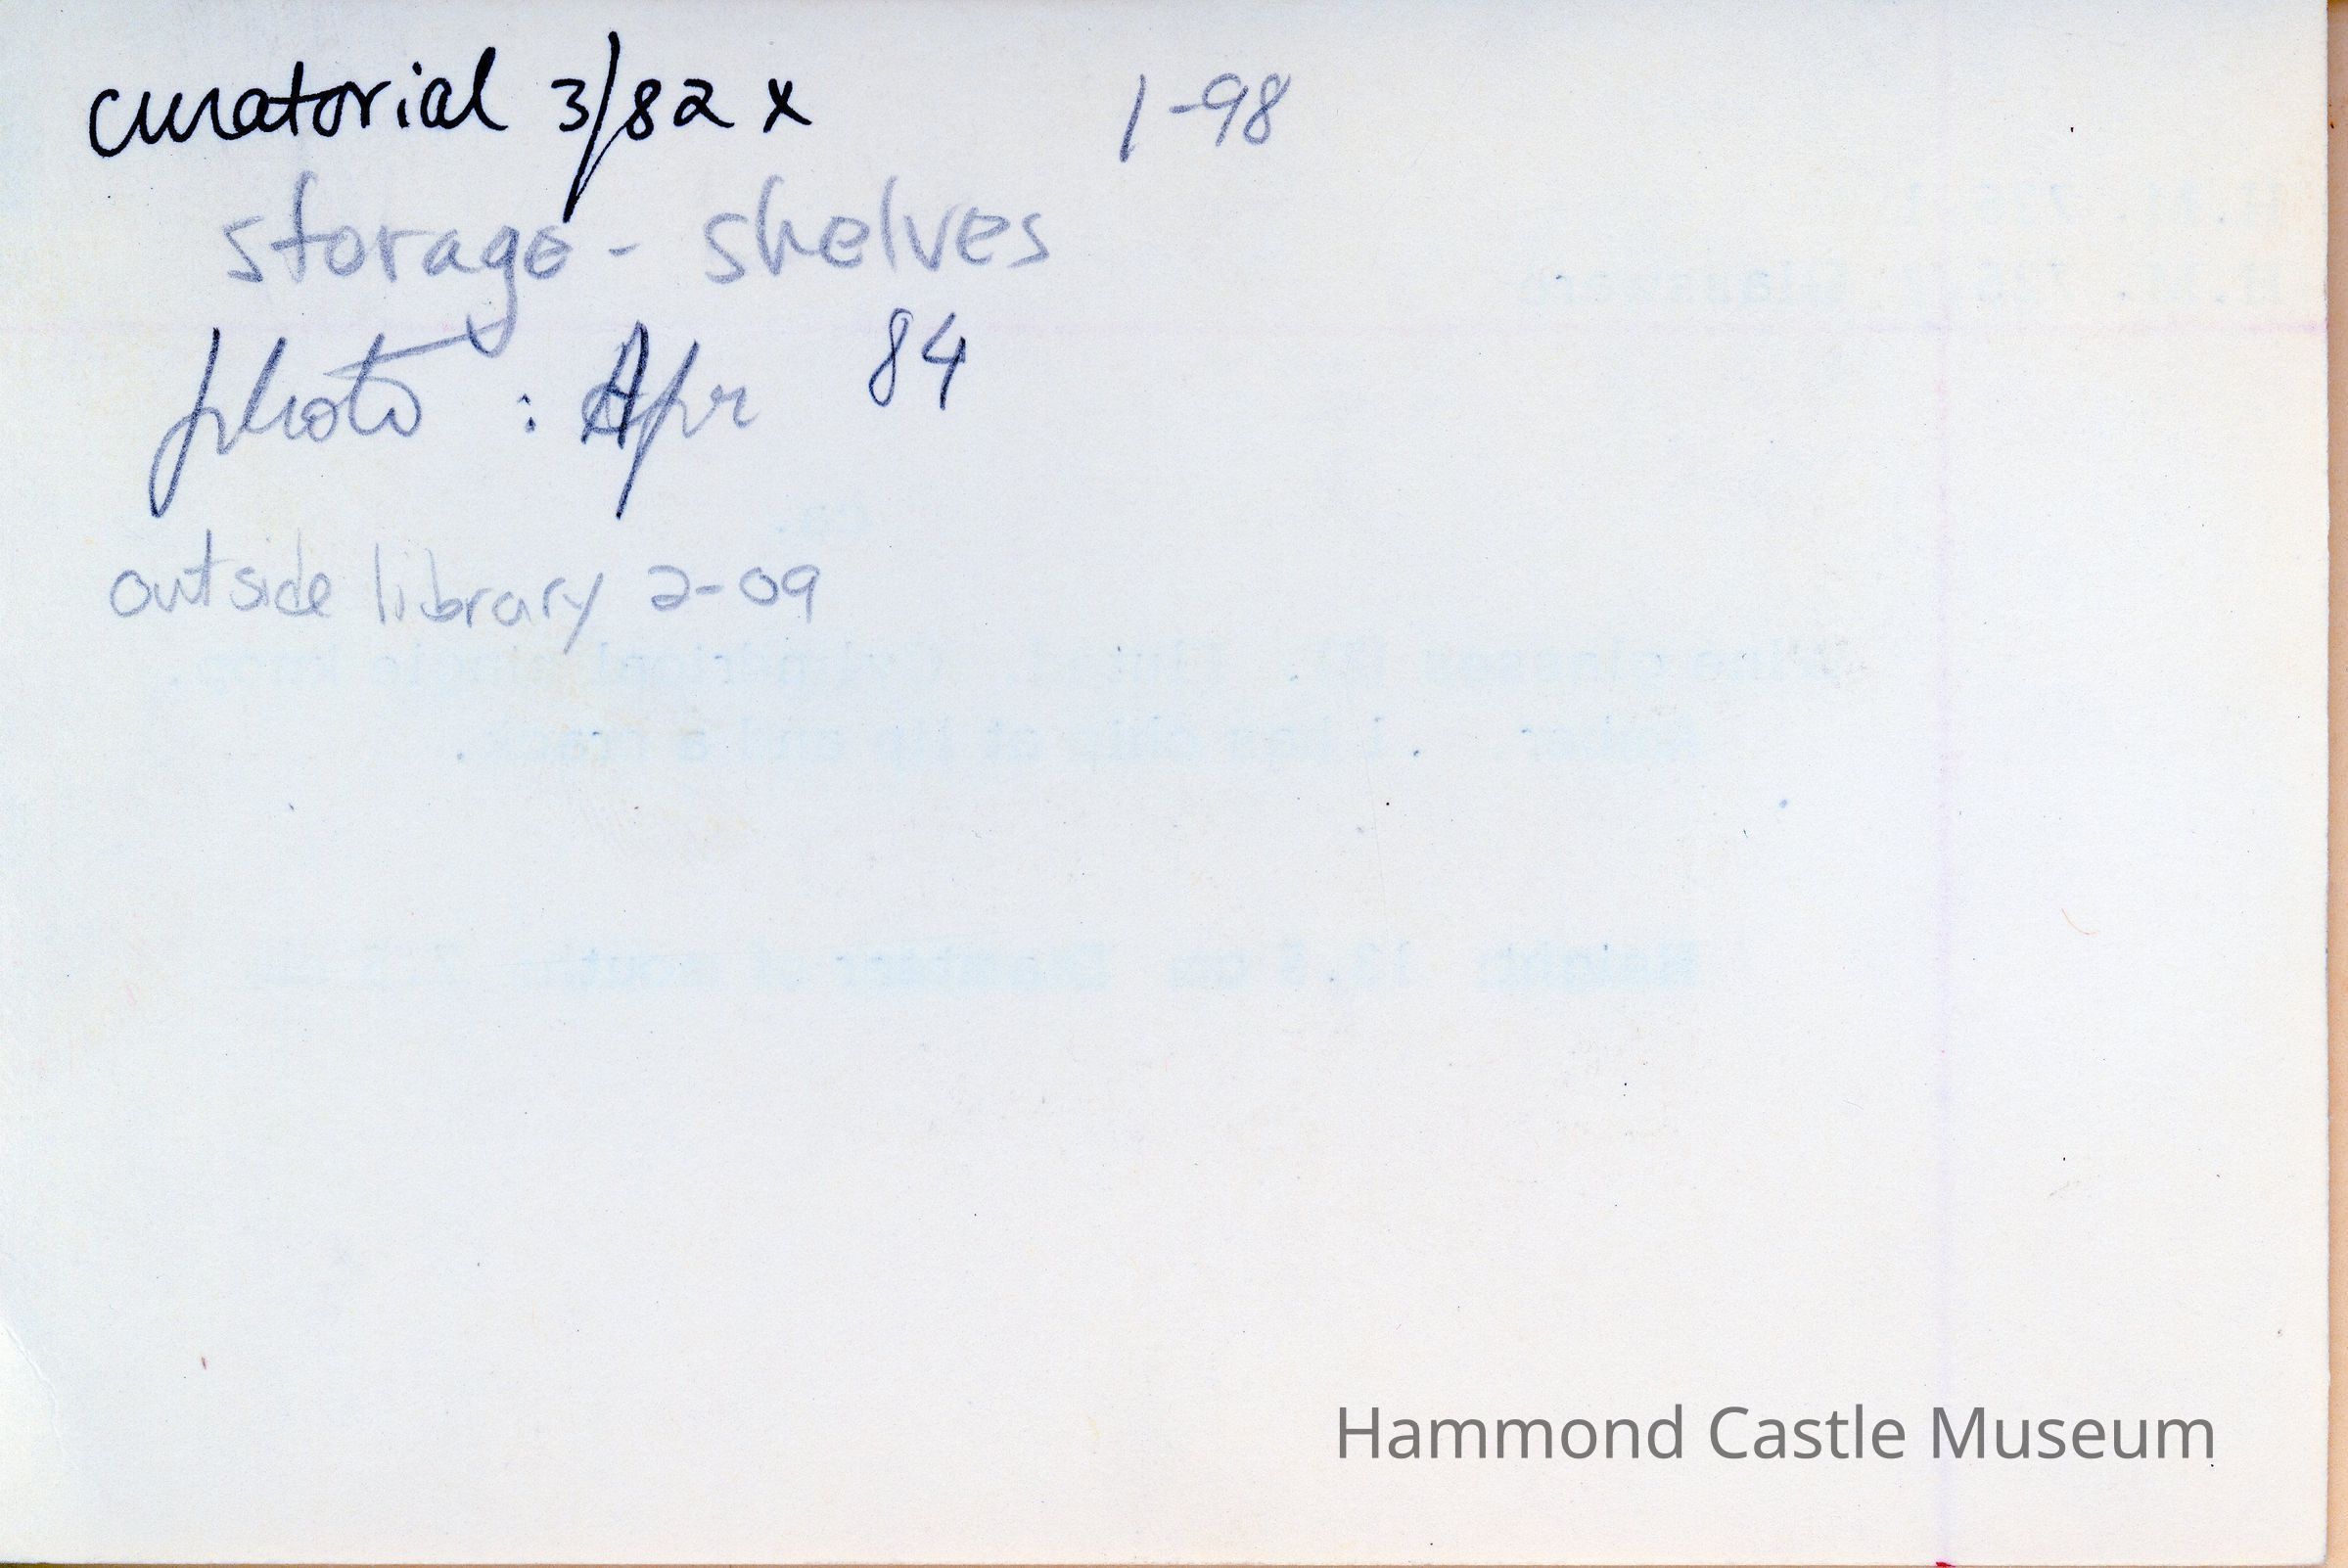 curatorial 3/82 x 1-98
storage - shelves
photo : Apr 84
outside library 2-09
Hammond Castle Museum